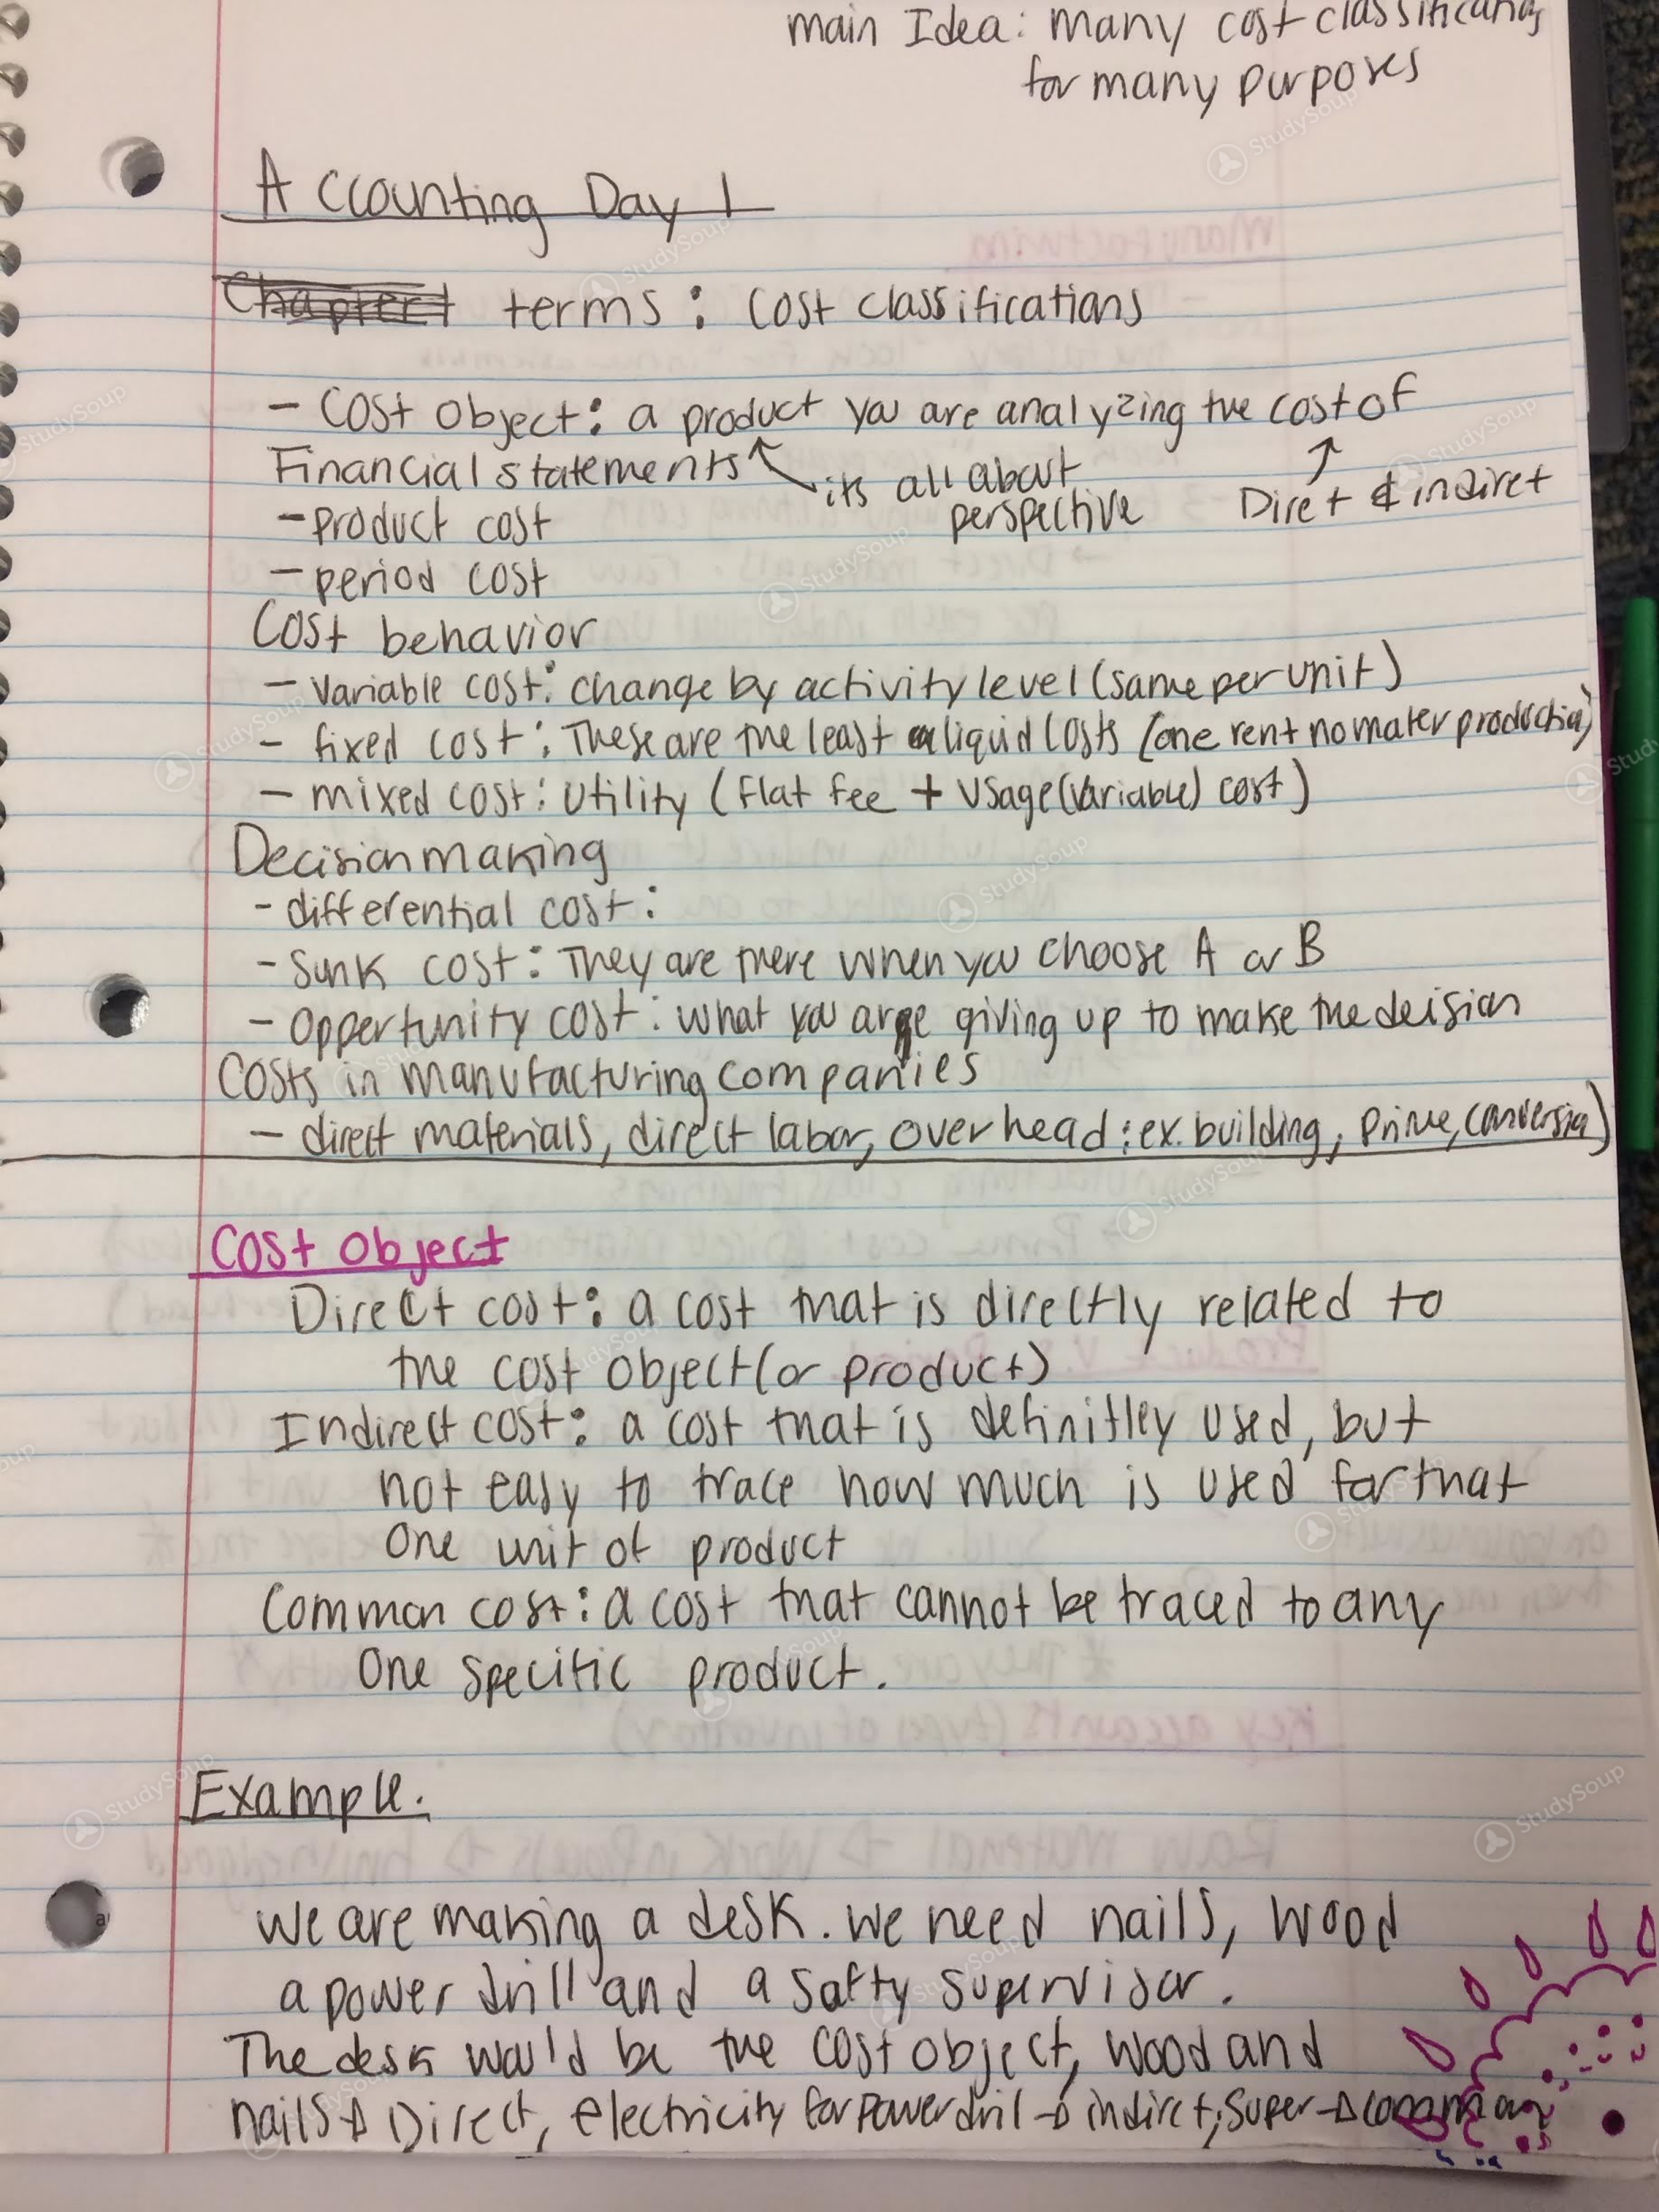 main Idea: many cost classifications
for many purposes
Accounting Day 1
Chapter 1 terms: Cost classifications
- Cost object: a product you are analyzing the cost of
Financial statements its all about Diret & indiret
perspective
- product cost
- period cost
Cost behavior
- variable cost: change by activity level (same per unit)
- fixed cost: These are the least liquid costs (one rent no mater production)
- mixed cost: utility (flat fee + usage (variable) cost)
Decision making
- differential cost:
- Sunk cost: They are there when you choose A or B
- Oppertunity cost: what you are giving up to make the deision
Costs in manufacturing companies
- direct materials, direct labor, overhead: ex. building, prime, conversion)
Cost object
Direct cost: a cost that is directly related to
the cost object (or product)
Indirect cost: a cost that is definitley used, but
not easy to trace how much is used for that
one unit of product
Common cost: a cost that cannot be traced to any
one specific product.
Example.
We are making a desk. We need nails, wood
a power drill and a safty supervisor.
The desk would be the cost object, wood and
nails → Direct, electricity for power dril → indirct, super → common
StudySoup